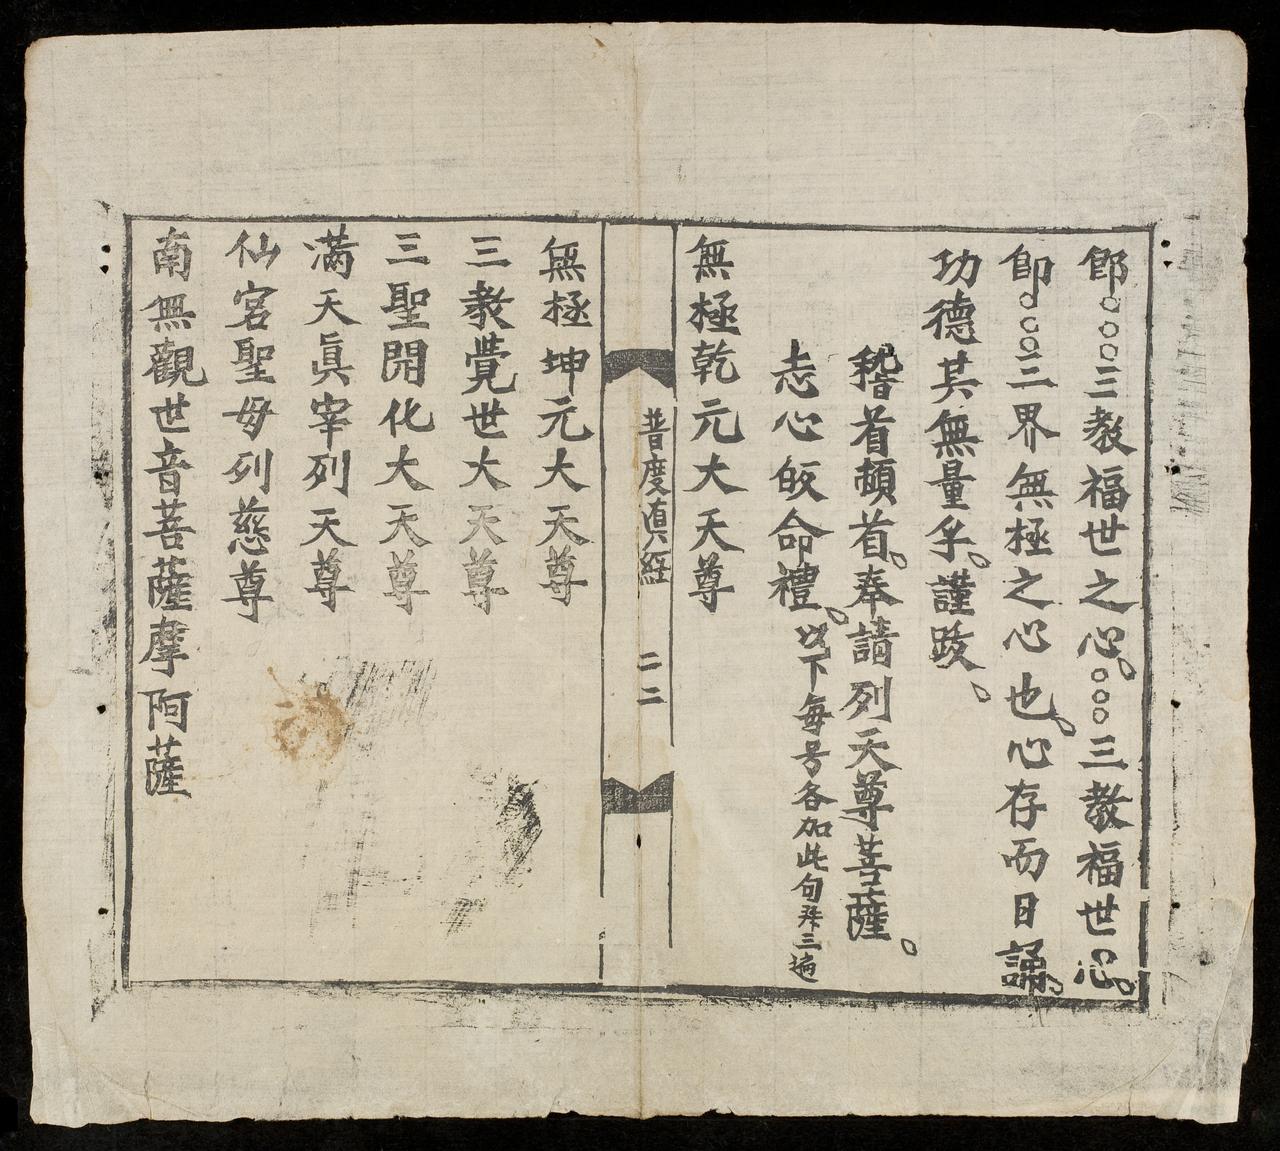 即○○○三教福世之心○○○三教福世心
即○○○三界無極之心也心存而日誦
功德其無量乎謹跋
稽首頓首奉請列天尊菩薩
志心皈命禮以下每号各加此句拜三遍
無極乾元大天尊
普度真經 二二
無極坤元大天尊
三教覺世大天尊
三聖開化大天尊
滿天眞宰列天尊
仙宮聖母列慈尊
南無觀世音菩薩摩阿薩